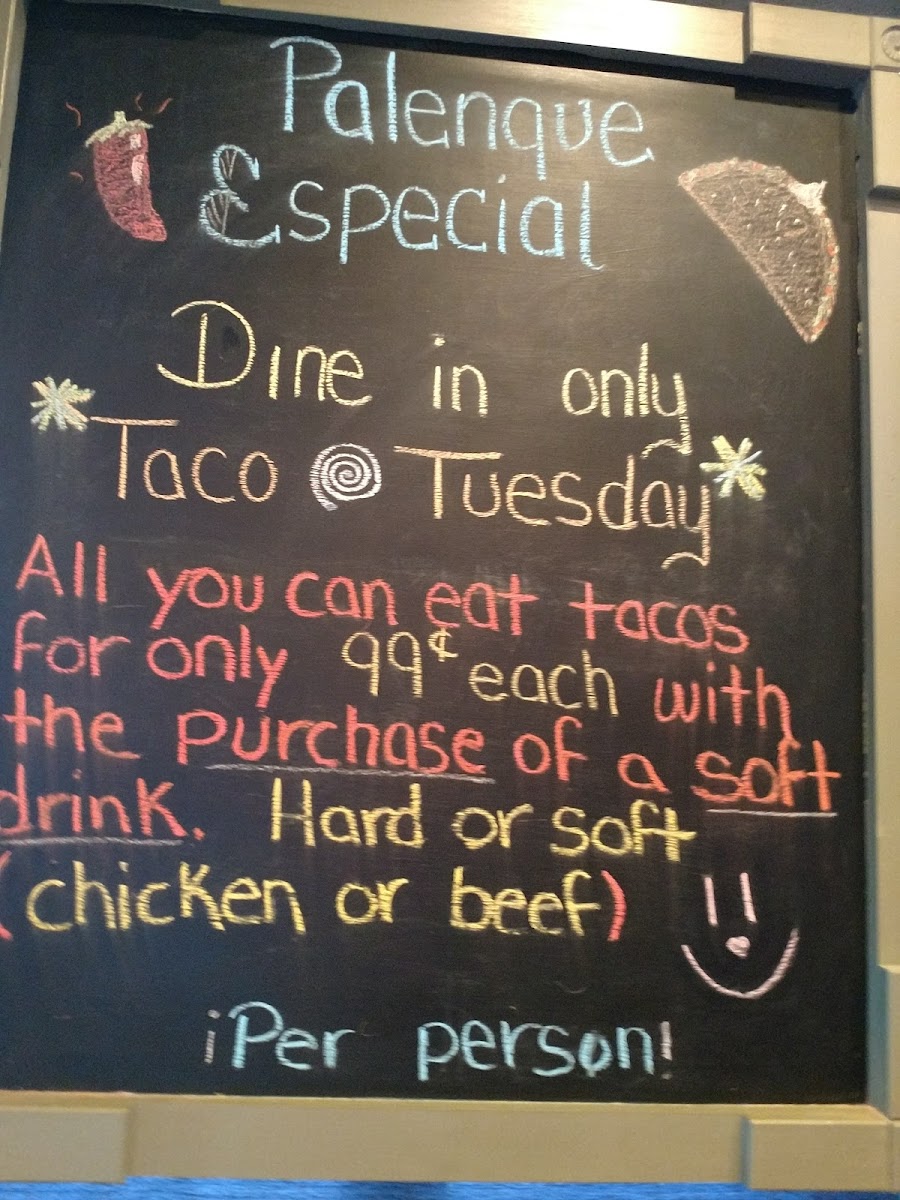 Palenque
Especial
Dine in only
Taco Tuesday
All you can eat tacos
for only 99¢ each with
the purchase of a soft
drink. Hard or soft
(chicken or beef)
¡Per person!